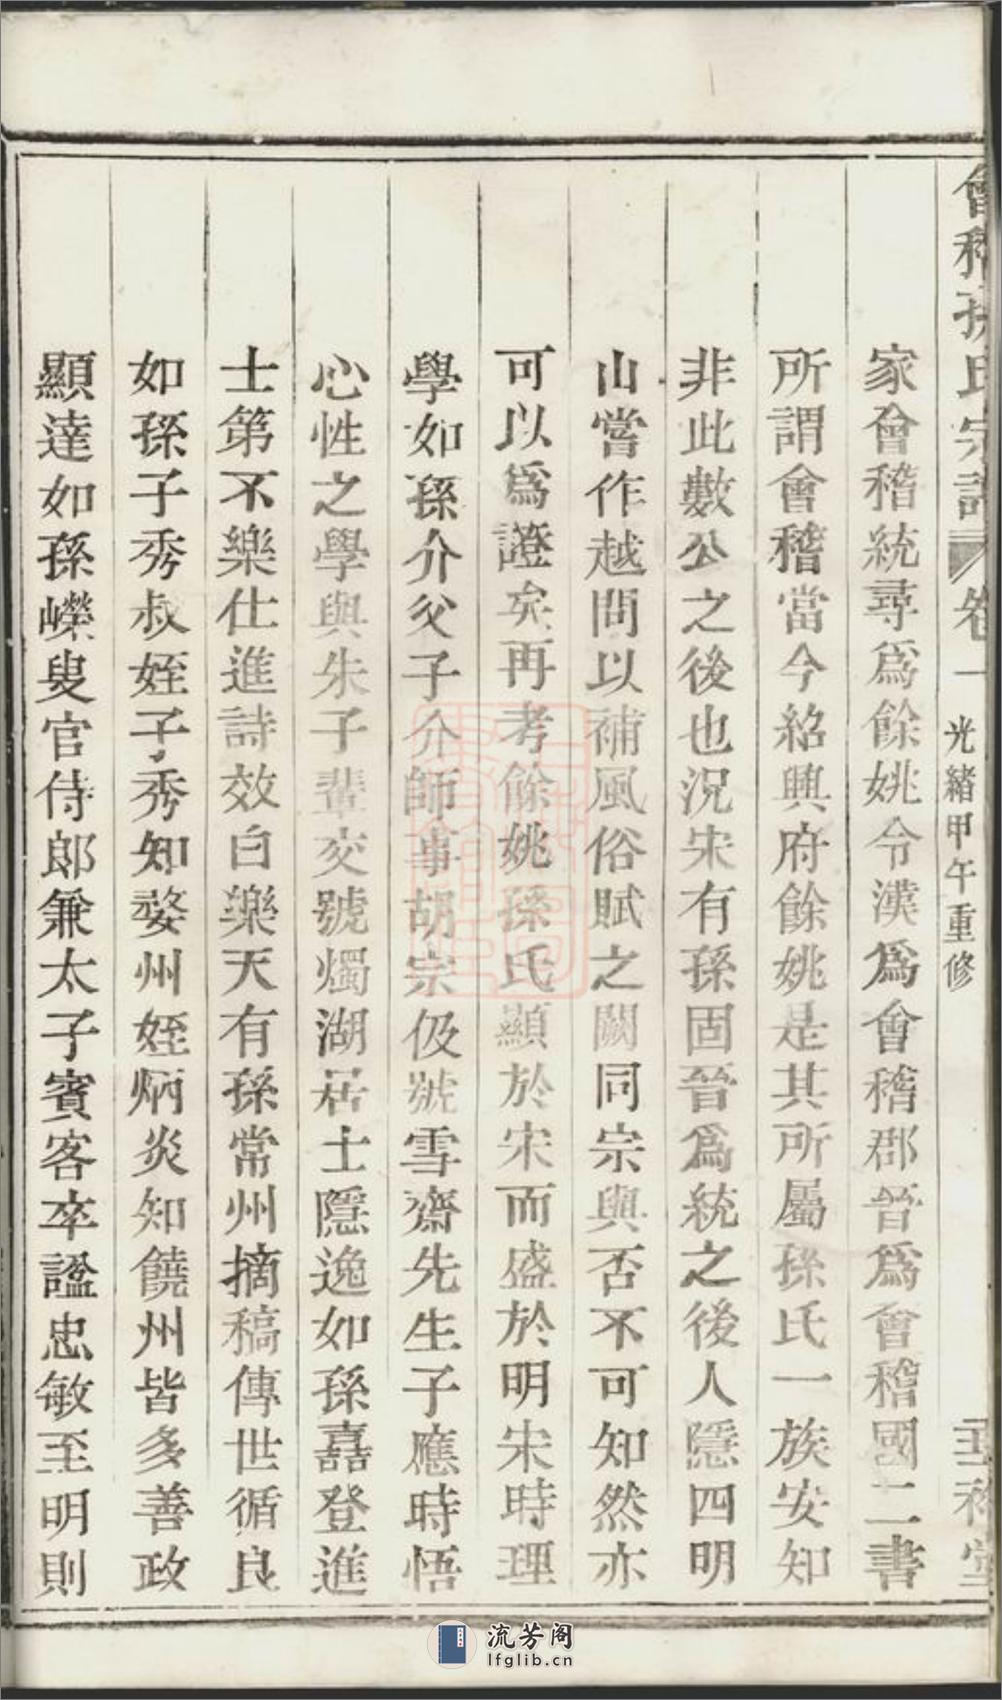 會稽孫氏宗譜 卷一 光緒甲午重修
家會稽統尋爲餘姚令漢爲會稽郡晉爲會稽國二書
所謂會稽當今紹興府餘姚是其所屬孫氏一族安知
非此數公之後也況宋有孫固晉爲統之後人隱四明
山嘗作越問以補風俗賦之闕同宗與否不可知然亦
可以爲證矣再考餘姚孫氏顯於宋而盛於明宋時理
學如孫介父子介師事胡宗伋號雪齋先生子應時悟
心性之學與朱子輩交號燭湖居士隱逸如孫嘉登進
士第不樂仕進詩效白樂天有孫常州摘稿傳世循良
如孫子秀叔姪子秀知婺州姪炳炎知饒州皆多善政
顯達如孫嶸叟官侍郎兼太子賓客卒諡忠敏至明則
流芳阁
lfglib.cn